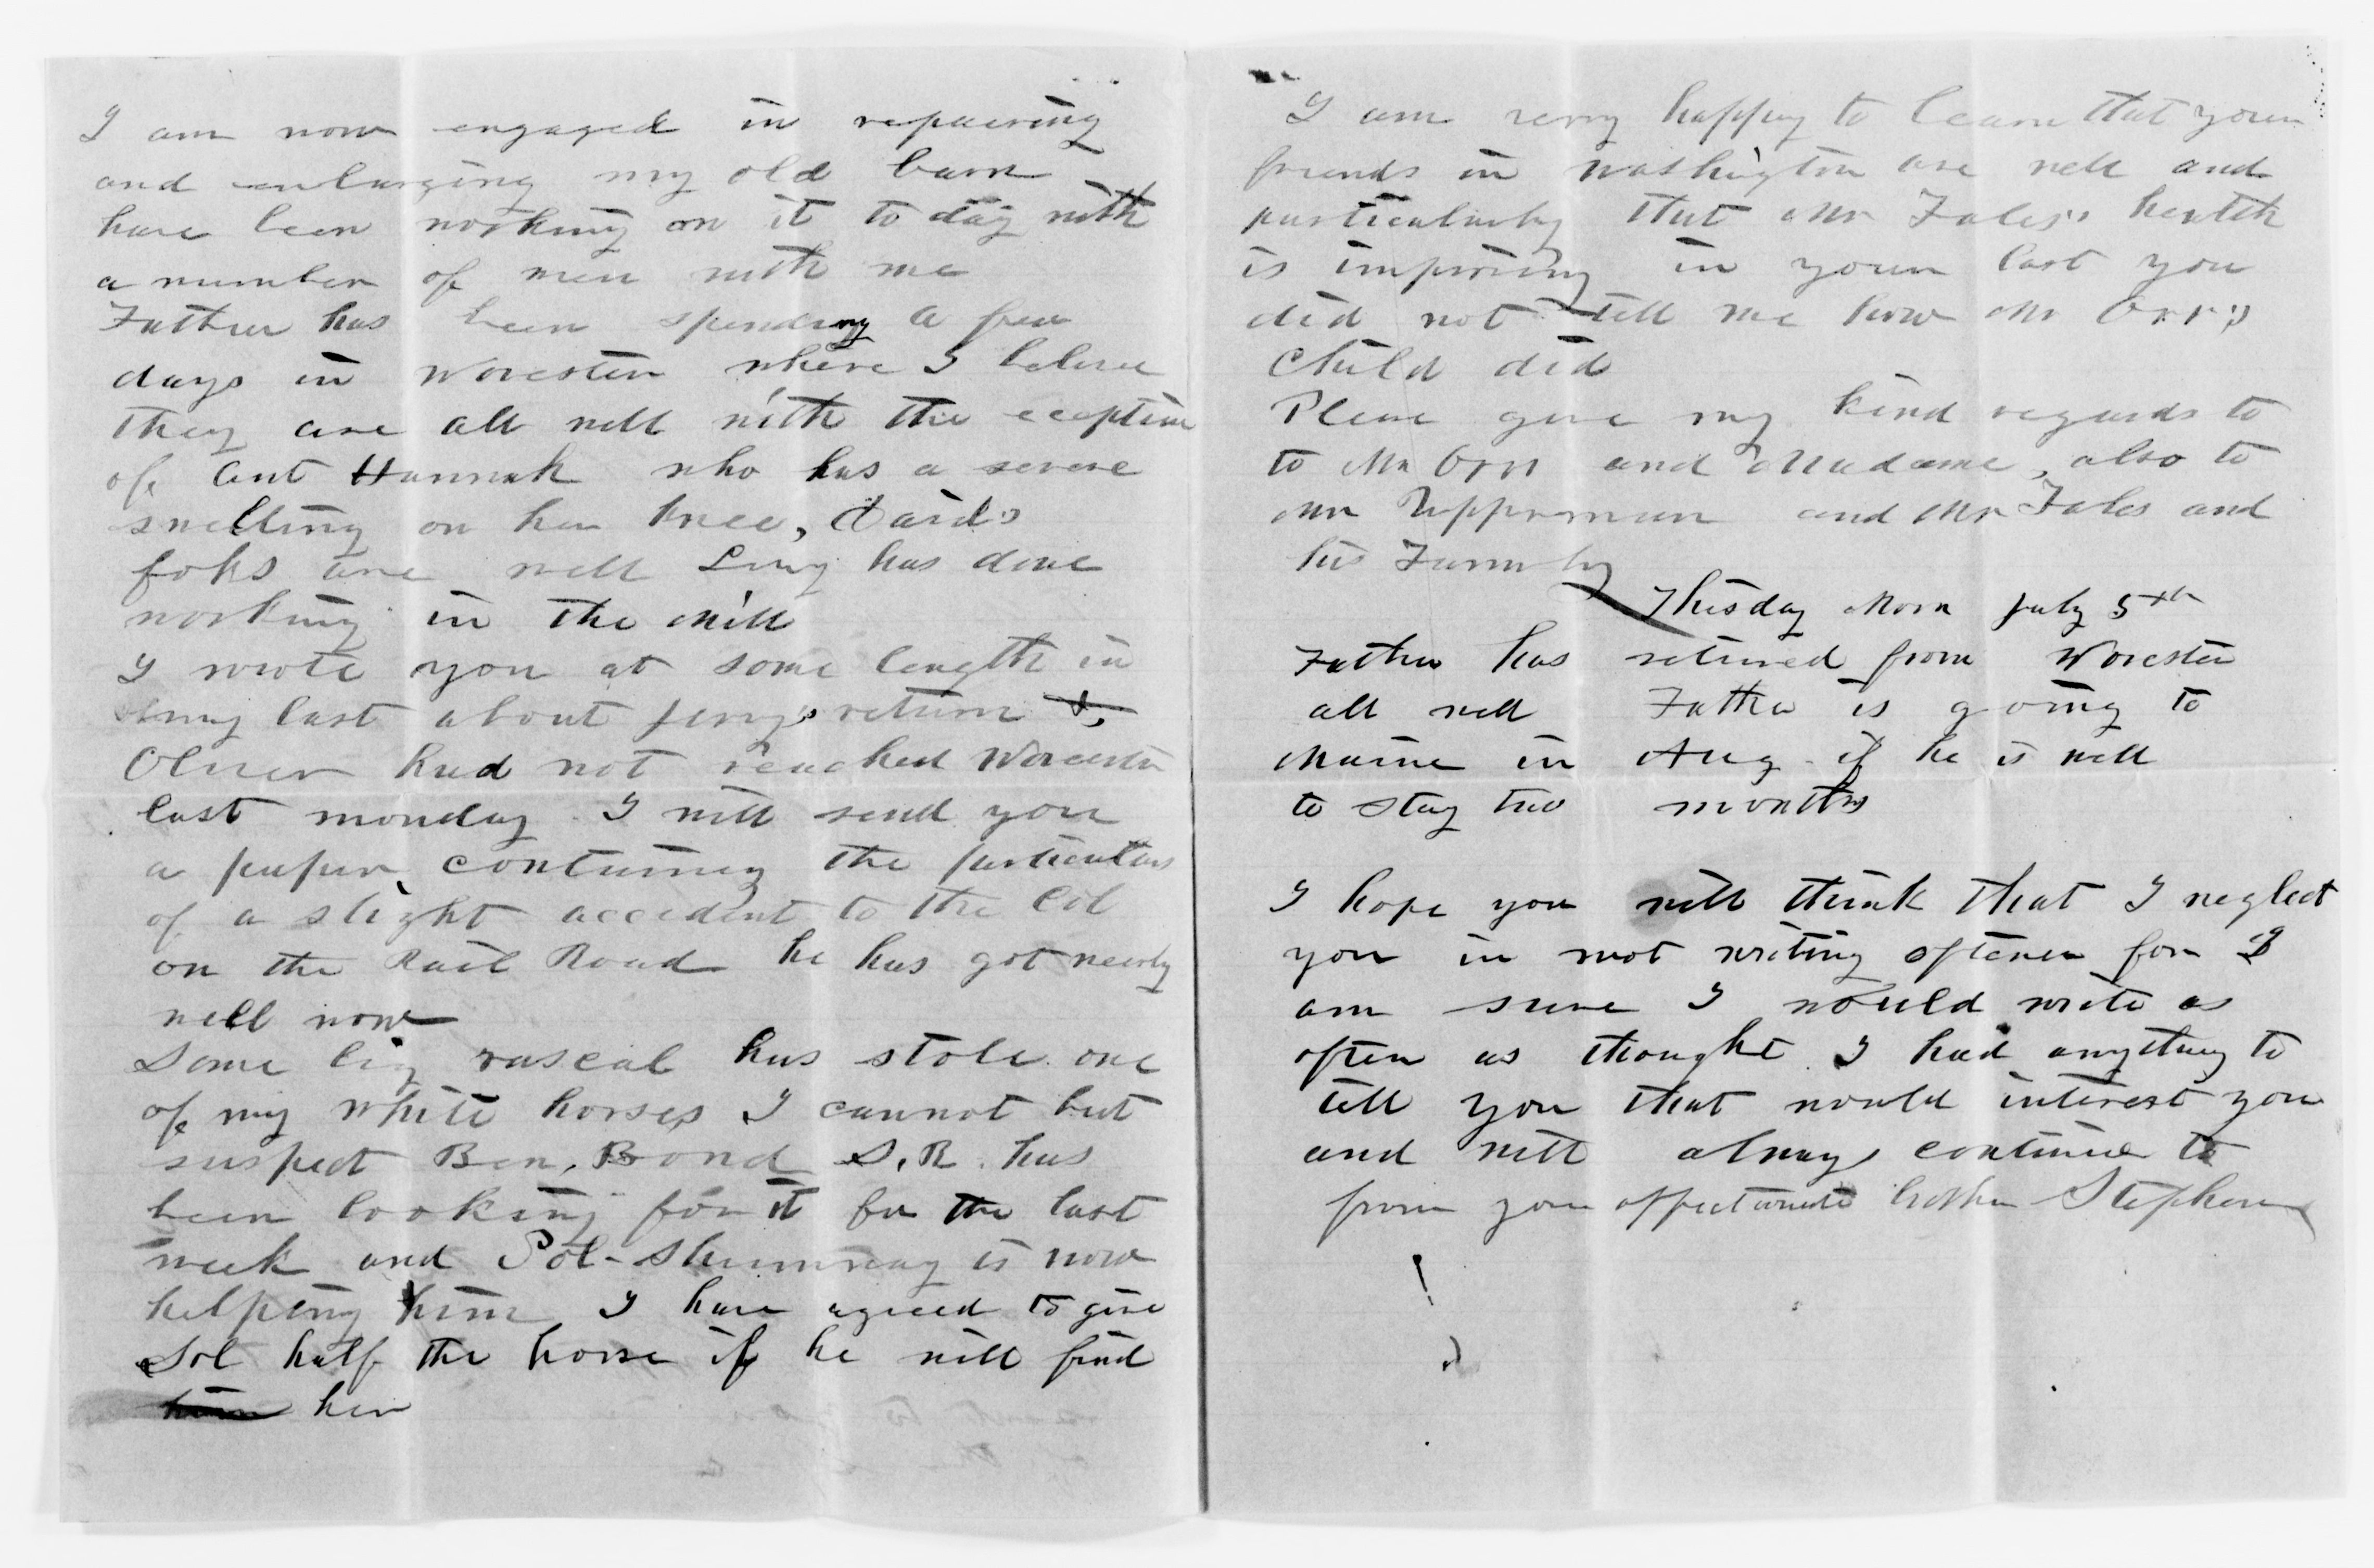 I am now engaged in repairing
and enlarging my old barn
have been working on it to day with
a number of men with me
Father has been spending a few
days in Worcester where I beleve
they are all well with the eception
of Ant Hannah who has a severe
swelling on her knee, David's
foks are well has done
working in the Mill
I wrote you at some length in
my last about return
Oliver had not reached Worcester
last monday I will send you
a paper contaning the particulars
of a slight accedent to the Col
on the Rail Road he has got nearly
well now
Some big rascal has stole one
of my white horses I cannot but
suspect Ben, Bond S. R. has
been looking for it for the last
week and Sol- Shumway is now
helping him I have agreed to give
Sol half the horse if he will find
him her
I am very happy to learn that your
friends in Washington are well and
particularly that Mr Fales's health
is improving in your last you
did not tell me how Mr Orr's
Child did
Please give my kind regards to
to Mr Orr and Madame, also to
Mr Upperman and Mr Fales and
his Family
Thisday Morn July 5th
Father has retured from Worcester
all well Father is going to
Maine in Aug - if he is well
to stay two months
I hope you will think that I neglect
you in not writing oftener for I
am sure I would write as
often as thought I had anything to
tell you that would interest you
and will always continue to
from your affectionate brother Stephen